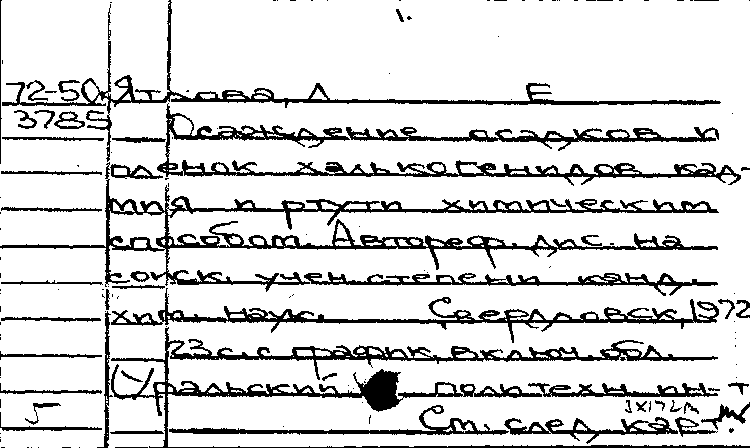 1.
72-50к Ятлова, Л Е
3785 Осаждение осадков и
пленок халькогенидов кад-
мия и ртути химическим
способом. Автореф. дис. на
соиск. учен. степени канд.
хим. наук. Свердловск, 1972
23 с. с график, включ. обл.
(Уральский политехн. ин-т
5 См. след. карт.